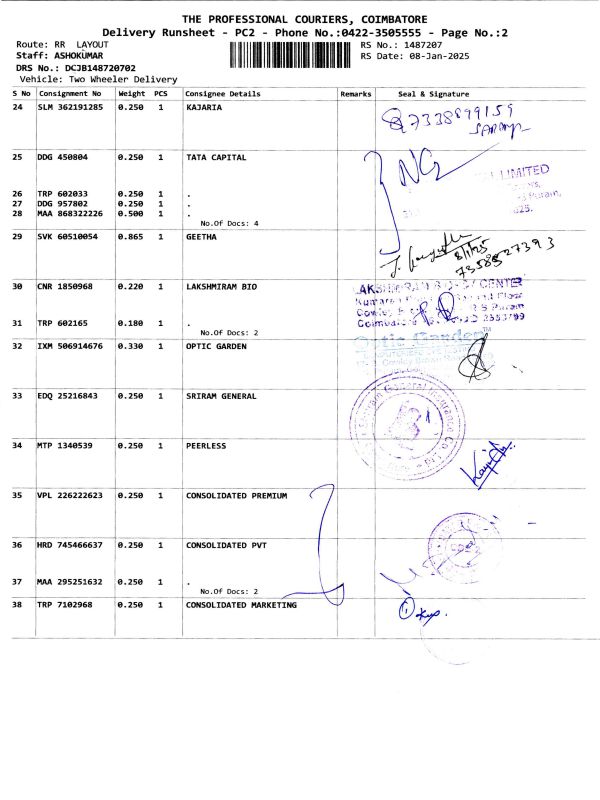 THE PROFESSIONAL COURIERS, COIMBATORE
Delivery Runsheet - PC2 - Phone No.:0422-3505555 - Page No.:2
Route: RR LAYOUT
RS No.: 1487207
Staff: ASHOKUMAR
RS Date: 08-Jan-2025
DRS No.: DCJB148720702
Vehicle: Two Wheeler Delivery
S No Consignment No Weight PCS Consignee Details Remarks Seal & Signature
24 SLM 362191285 0.250 1 KAJARIA
7338899159
25 DDG 450804 0.250 1 TATA CAPITAL
LIMITED
26 TRP 602033 0.250 1 .
27 DDG 957802 0.250 1 .
28 MAA 868322226 0.500 1 .
No.Of Docs: 4
29 SVK 60510054 0.865 1 GEETHA
8/1/25
7358527393
30 CNR 1850968 0.220 1 LAKSHMIRAM BIO
CENTER
Floor
Coimbatore
31 TRP 602165 0.180 1 .
No.Of Docs: 2
32 IXM 506914676 0.330 1 OPTIC GARDEN
Optic Garden™
33 EDQ 25216843 0.250 1 SRIRAM GENERAL
General Insurance Co. Ltd
34 MTP 1340539 0.250 1 PEERLESS
35 VPL 226222623 0.250 1 CONSOLIDATED PREMIUM
36 HRD 745466637 0.250 1 CONSOLIDATED PVT
37 MAA 295251632 0.250 1 .
No.Of Docs: 2
38 TRP 7102968 0.250 1 CONSOLIDATED MARKETING